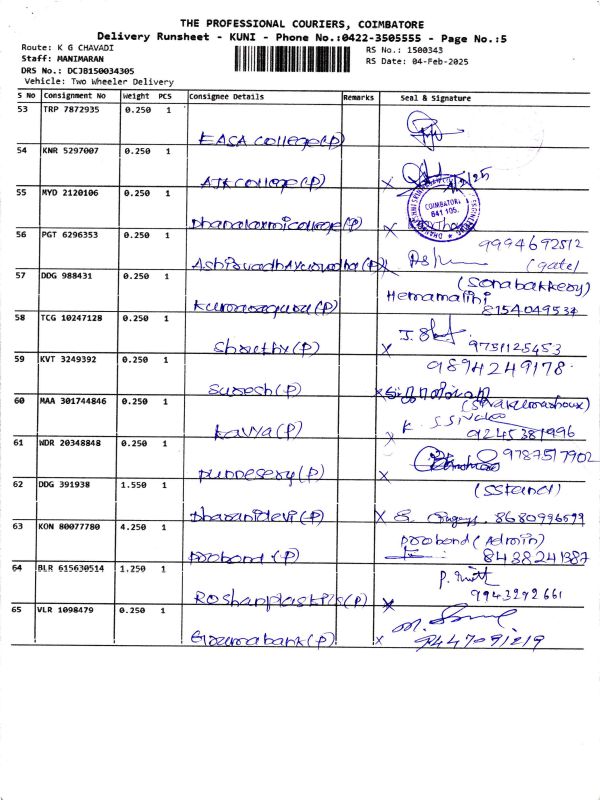 THE PROFESSIONAL COURIERS, COIMBATORE
Delivery Runsheet - KUNI - Phone No.:0422-3505555 - Page No.:5
Route: K G CHAVADI
RS No.: 1500343
Staff: MANIMARAN
RS Date: 04-Feb-2025
DRS No.: DCJB150034305
Vehicle: Two Wheeler Delivery
S No Consignment No Weight PCS Consignee Details Remarks Seal & Signature
53 TRP 7872935 0.250 1
EASA college(P)
54 KNR 5297007 0.250 1
AJK college(P) X
55 MYD 2120106 0.250 1
COIMBATORE
641 105.
Dhanalaxmicollege(P) X
56 PGT 6296353 0.250 1
9994692512
(gate)
57 DDG 988431 0.250 1
(Sonabakkery)
Hemamalini
8154049537
58 TCG 10247128 0.250 1
Shruthy(P) X
9751125453
59 KVT 3249392 0.250 1
9894249178
Suresh(P) X
60 MAA 301744846 0.250 1
Kavya(P) X
9245381996
61 WDR 20348848 0.250 1
9787517902
punnesery(P) X
62 DDG 391938 1.550 1
(SStand)
Dharanidevi(P) X
8680996599
63 KON 80077780 4.250 1
probond (Admin)
probond (P)
8438241387
64 BLR 615630514 1.250 1
9943292661
Roshanplastics(P) X
65 VLR 1098479 0.250 1
9447091219
X